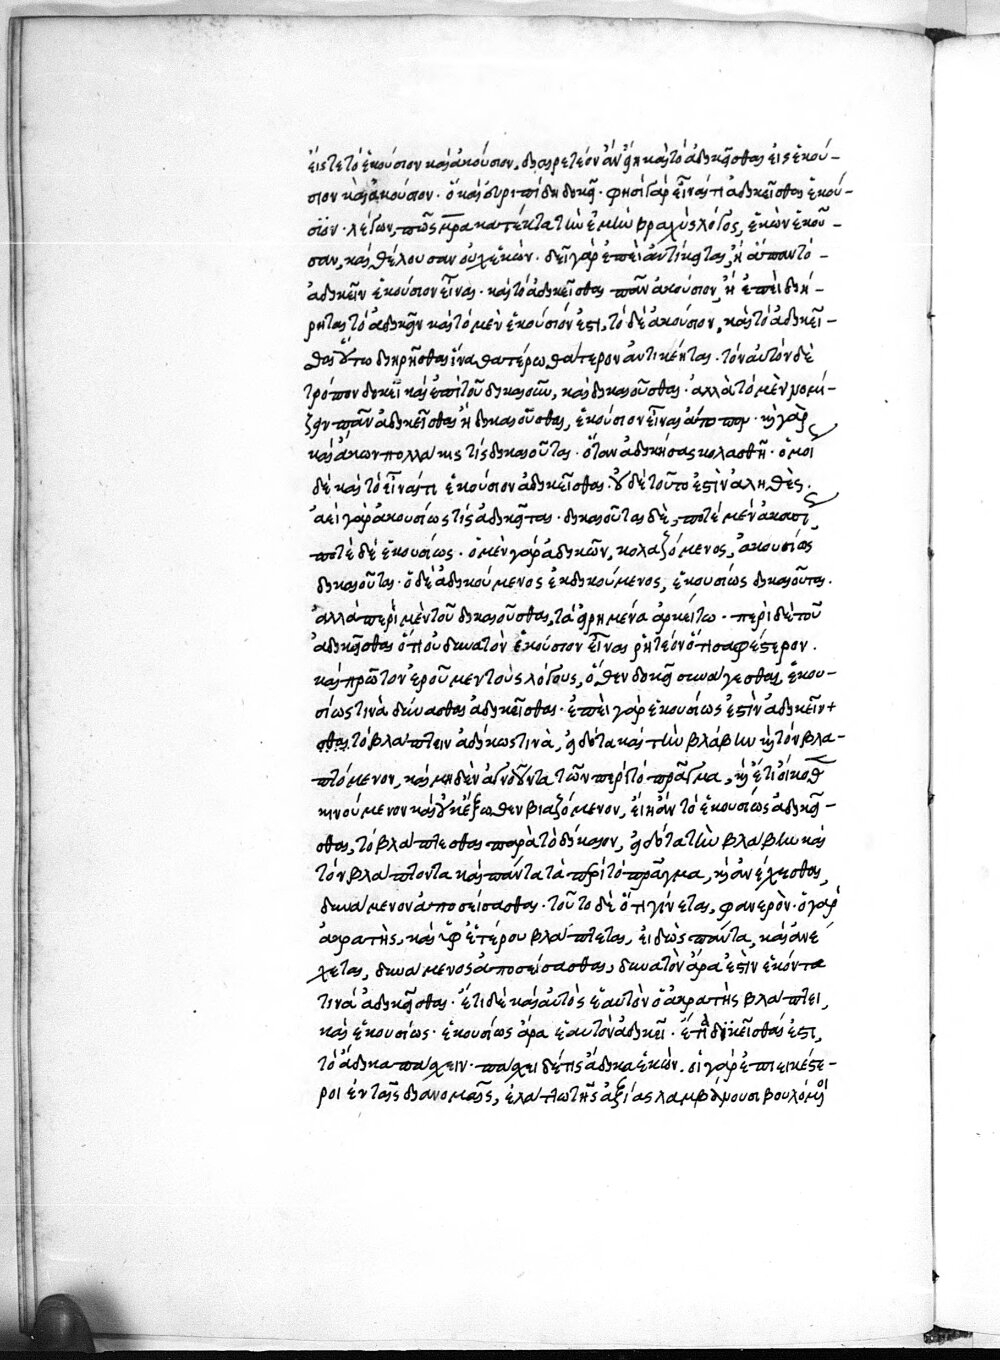 εἴς τε τὸ ἑκούσιον καὶ ἀκούσιον. διαιρετέον ἂν εἴη καὶ τὸ ἀδικεῖσθαι εἰς ἑκού-
σιον καὶ ἀκούσιον· ὃ καὶ εὐριπίδη δοκεῖ· φησὶ γὰρ εἶναί τι ἀδικεῖσθαι ἑκού-
σϊον· λέγων, πῶς μρα κατέκτα τὴν ἐμὴν βραχὺς λόγος, ἑκὼν ἑκοῦ-
σαν, καὶ θέλουσαν οὐχ ἑκών· δεῖ γὰρ ἐπεὶ ἀντίκειται, ἢ ἅπαν τὸ
ἀδικεῖν ἑκούσιον εἶναι· καὶ τὸ ἀδικεῖσθαι πᾶν ἀκούσιον, ἢ ἐπεὶ διῄ-
ρηται τὸ ἀδικεῖν καὶ τὸ μὲν ἑκούσιόν ἐστι, τὸ δὲ ἀκούσιον, καὶ τὸ ἀδικεῖ-
σθαι οὕτω διῃρῆσθαι ἵνα θατέρω θάτερον ἀντικέηται· τὸν αὐτὸν δὲ
τρόπον δοκεῖ καὶ ἐπὶ τοῦ δικαιοῦν, καὶ δικαιοῦσθαι· ἀλλὰ τὸ μὲν νομί-
ζειν πᾶν ἀδικεῖσθαι ἢ δικαιοῦσθαι, ἑκούσιον εἶναι ἄτοπον· καὶ γὰρ
καὶ ἄκων πολλάκις τὶς δικαιοῦται· ὅταν ἀδικήσας κολασθῆ· ὅμοι
δὲ καὶ τὸ εἶναί τι ἑκούσιον ἀδικεῖσθαι· οὐδὲ τοῦτο ἐστὶν ἀληθές·
ἀεὶ γὰρ ἀκουσίως τὶς ἀδικεῖται· δικαιοῦται δὲ, ποτὲ μὲν ἀκουσί,
ποτὲ δὲ ἑκουσίως· ὁ μὲν γὰρ ἀδικῶν, κολαζόμενος, ἀκουσίως
δικαιοῦται· ὁ δὲ ἀδικούμενος ἐκδικούμενος, ἑκουσίως δικαιοῦται.
ἀλλὰ περὶ μὲν τοῦ δικαιοῦσθαι, τὰ εἰρημένα ἀρκείτω· περὶ δὲ τοῦ
ἀδικεῖσθαι ὅτι οὐ δυνατὸν ἑκούσιον εἶναι ῥητέον ὅτι σαφέστερον.
καὶ πρῶτον ἐροῦμεν τοὺς λόγους, ὅθεν δοκεῖ συνάγεσθαι, ἑκου-
σίως τινὰ δύνασθαι ἀδικεῖσθαι· ἐπεὶ γὰρ ἑκουσίως ἐστὶν ἀδικεῖν+
σθαι τὸ βλάπτειν ἀδίκως τινὰ, εἰδότα καὶ τὴν βλάβην καὶ τὸν βλα-
πτόμενον, καὶ μηδὲν ἀγνοοῦντα τῶν περὶ τὸ πρᾶγμα, καὶ ἔτι οἴκοθ
κινούμενον καὶ οὐκ ἔξωθεν βιαζόμενον, εἴη ἂν τὸ ἑκουσίως ἀδικεῖ-
σθαι, τὸ βλάπτεσθαι παρὰ τὸ δίκαιον, εἰδότα τὴν βλάβην καὶ
τὸν βλάπτοντα καὶ πάντα τὰ περὶ τὸ πρᾶγμα, καὶ ἀνέχεσθαι,
δυνάμενον ἀποσείσασθαι· τοῦτο δὲ ὅτι γίνεται, φανερὸν· ὁ γὰρ
ἀκρατὴς, καὶ ὑφ ἑτέρου βλάπτεται, εἰδὼς πάντα, καὶ ἀνέ
χεται, δυνάμενος ἀποσείσασθαι, δυνατὸν ἄρα ἐστὶν ἑκόντα
τινὰ ἀδικεῖσθαι· ἔτι δὲ καὶ αὐτὸς ἑαυτὸν ὁ ἀκρατὴς βλάπτει,
καὶ ἑκουσίως· ἑκουσίως ἄρα ἑαυτὸν ἀδικεῖ· ἔτι ἀδικεῖσθαί ἐστι,
τὸ ἄδικα πάχειν· πάχει δέ τις ἄδικα ἑκών. οἱ γὰρ ἐπιεικέστε-
ροι ἐν ταῖς διανομαῖς, ἐλάττω τῆς ἀξίας λαμβάνουσι βουλόμε